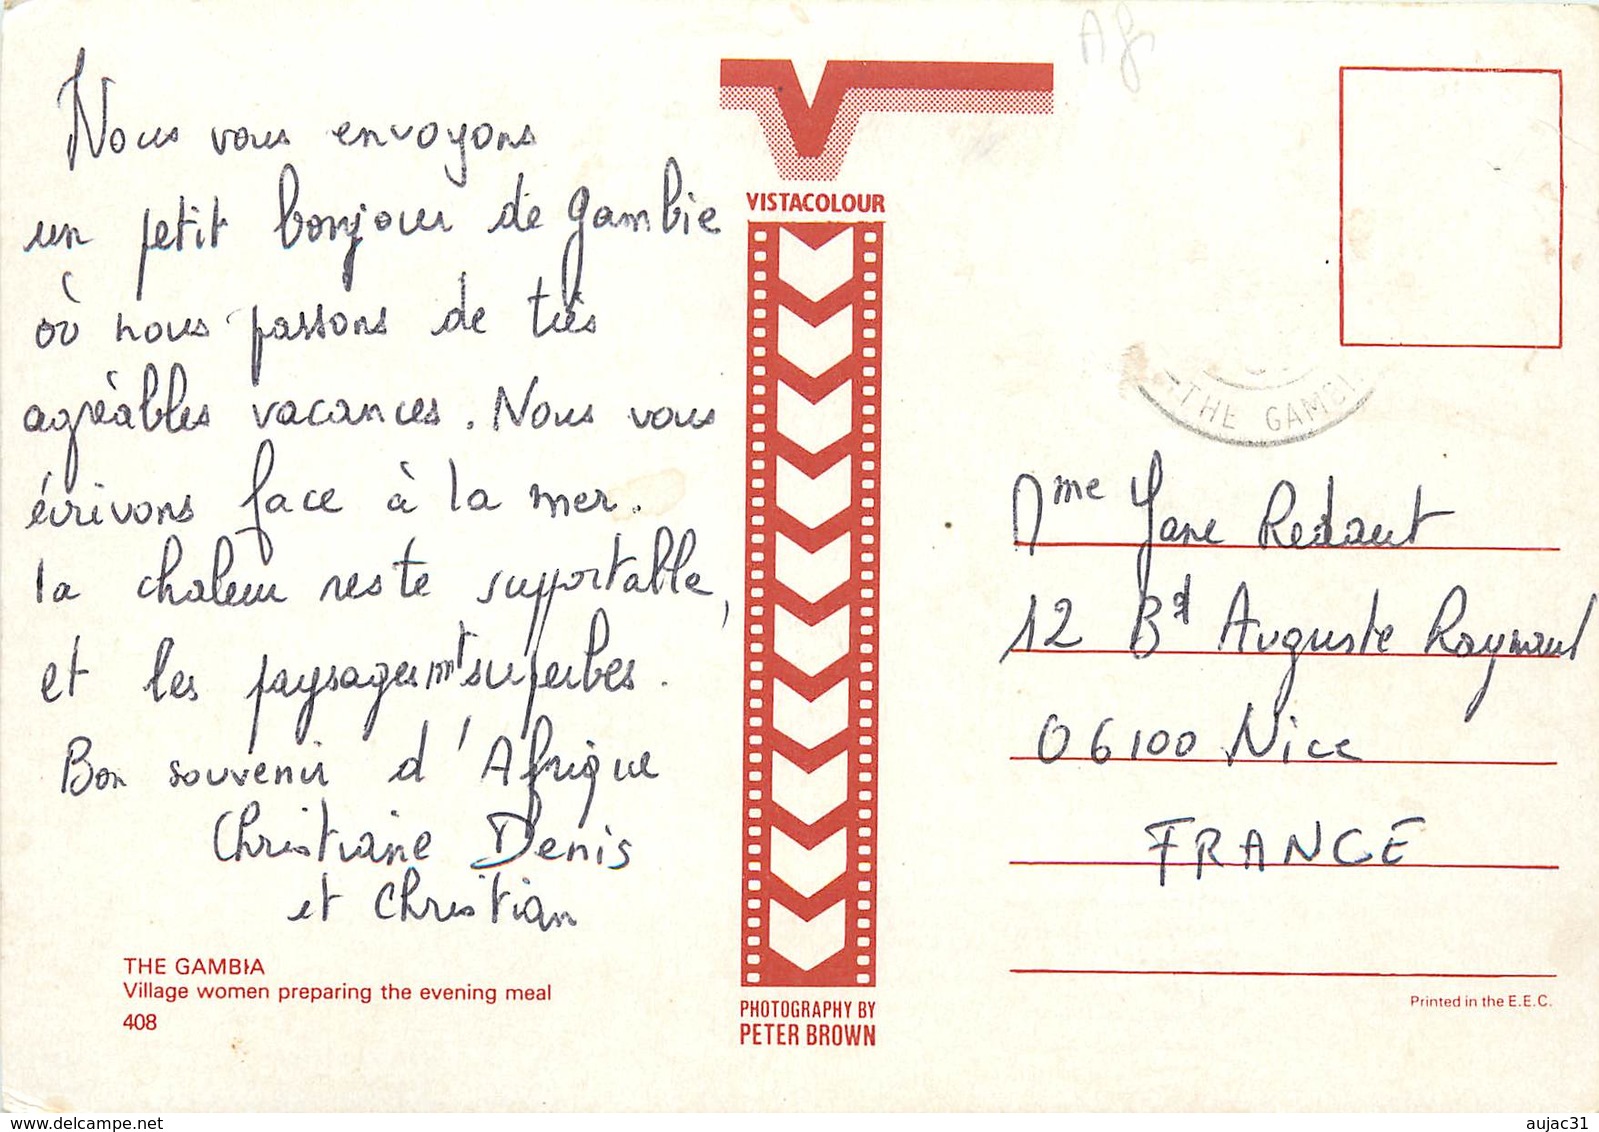 Nous vous envoyons
un petit bonjour de Gambie
où nous passons de très
agréables vacances. Nous vous
écrivons face à la mer.
la chaleur reste supportable,
et les paysages snt superbes.
Bon souvenir d'Afrique
Christiane Denis
et Christian
THE GAMBIA
Village women preparing the evening meal
408
VISTACOLOUR
PHOTOGRAPHY BY
PETER BROWN
Af
-THE GAMBI
Mme Jane Redaut
12 Bd Auguste Raynaud
06100 Nice
FRANCE
Printed in the E.E.C.
www.delcampe.net
aujac31